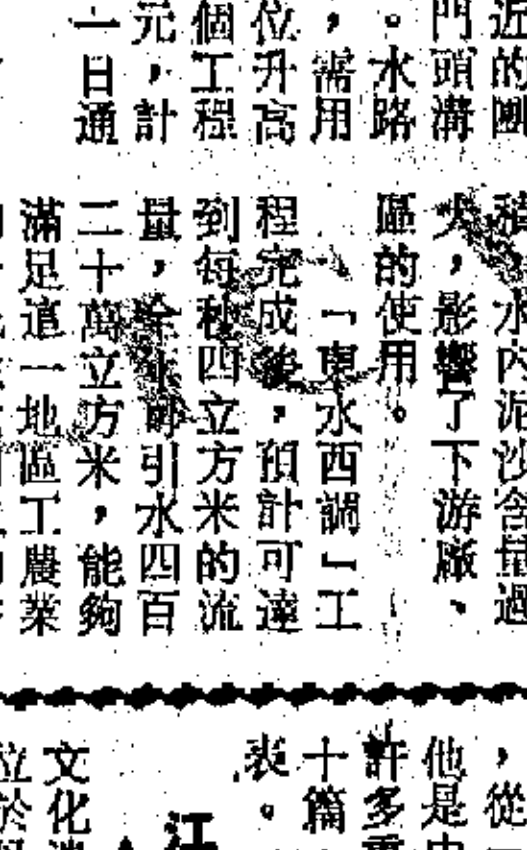 近的團
門頭溝
。水路
,需用
位升高
個工程
元,計
一日通
積,水內泥沙含量過
大,影響了下游廠、
區的使用。
「東水西調」工
程完成後,預計可達
到每秒四立方米的流
量,全年可引水四百
二十萬立方米,能夠
滿足這一地區工農業
,從
他是
許多
十篇
表。
江
文化
位於